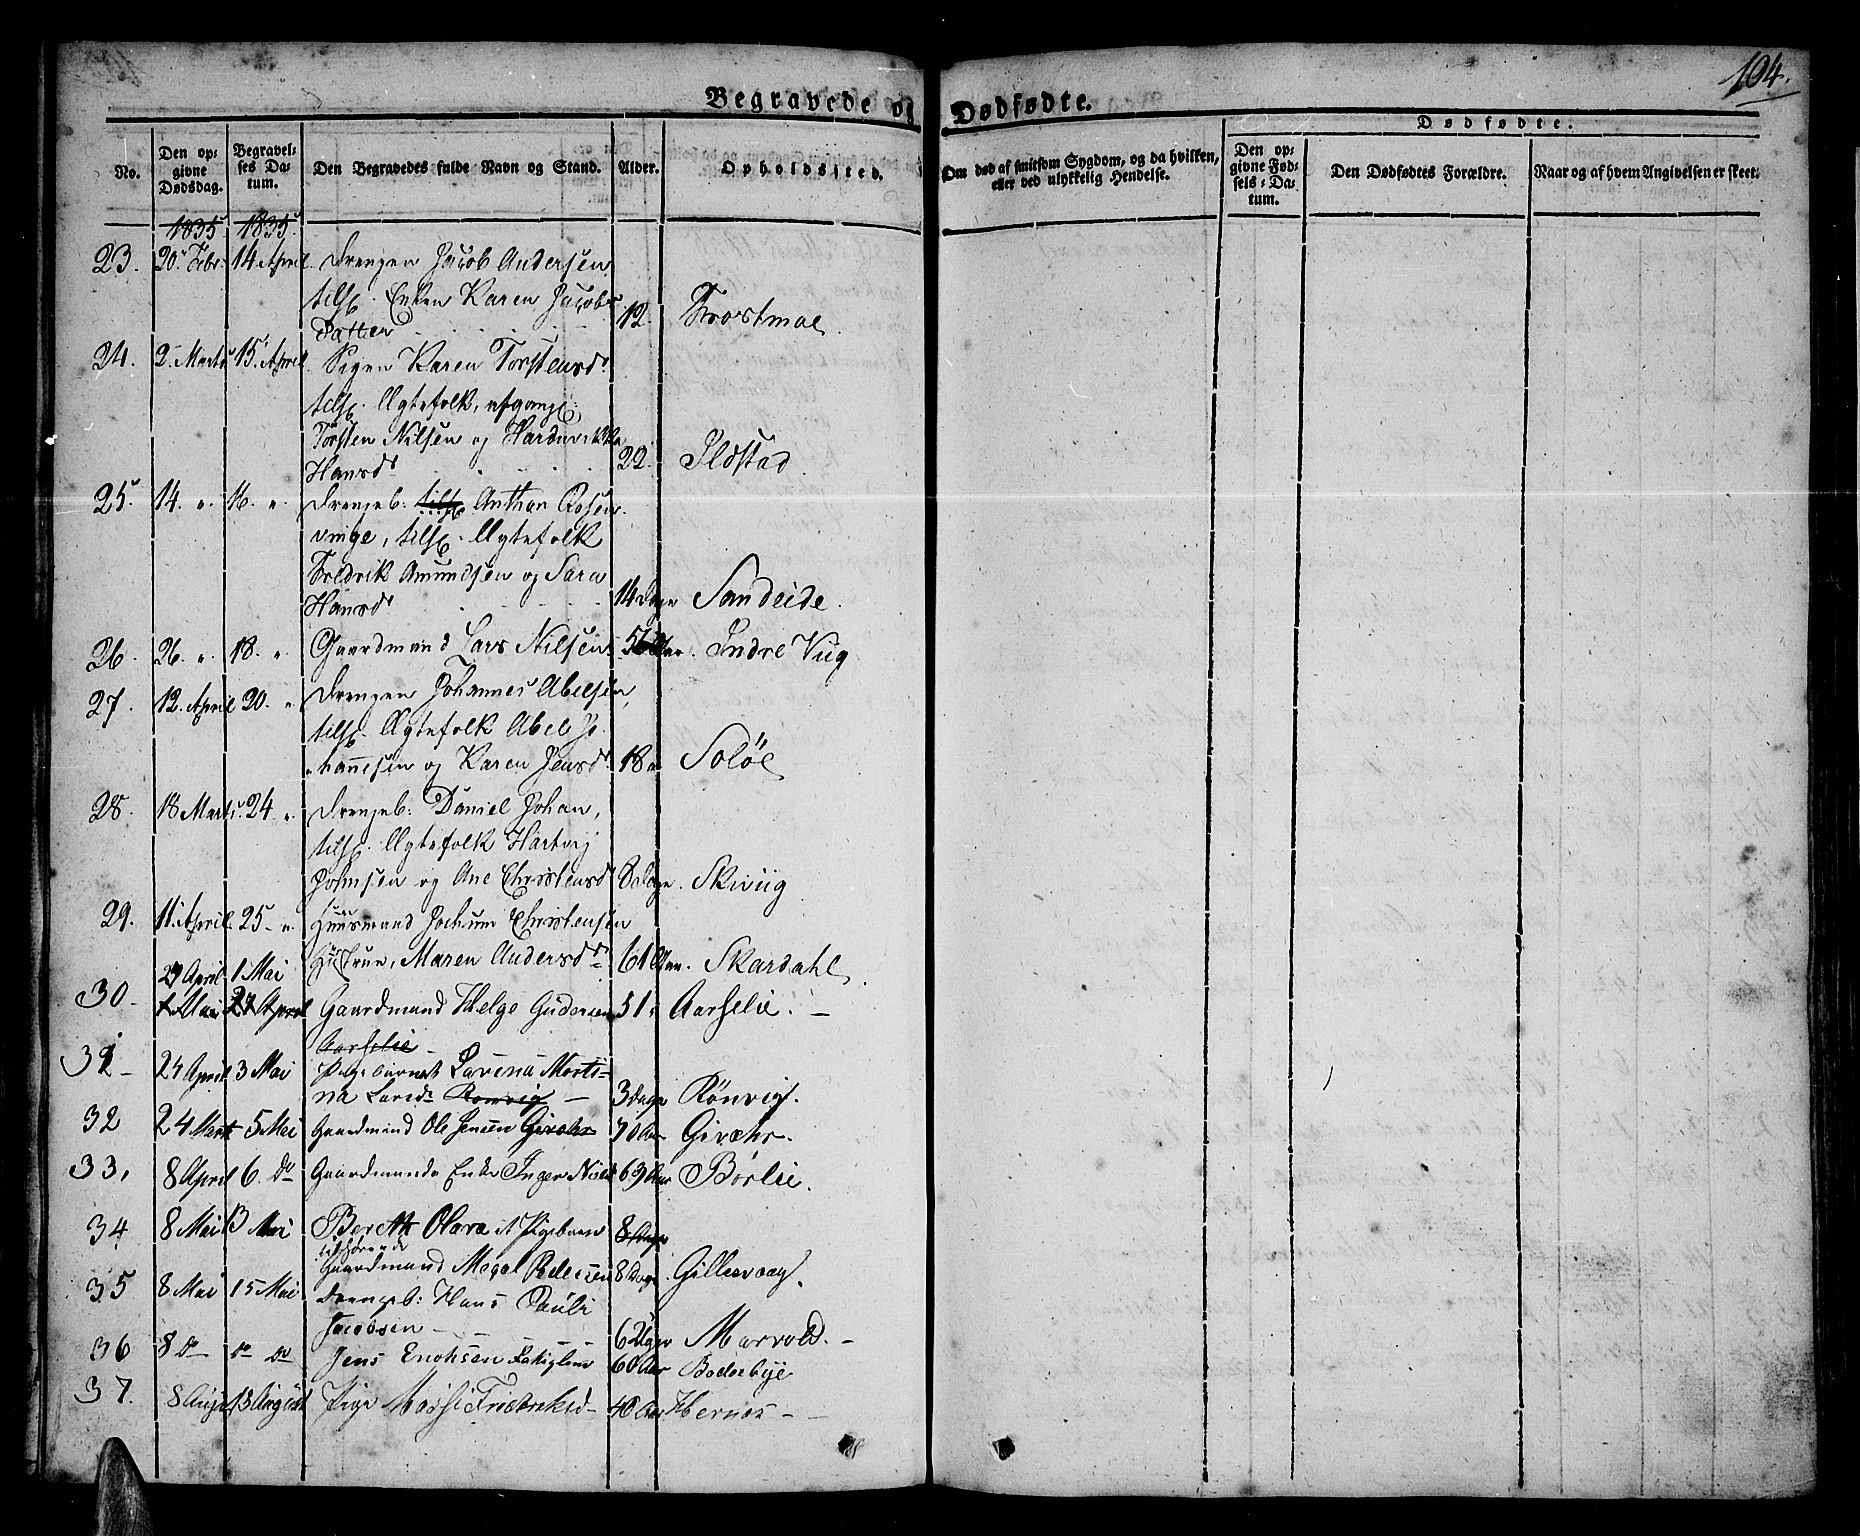 104.
Begravede og Dødfødte.
No.
Den opgivne Dødsdag.
Begravelses Datum.
Den Begravedes fulde Navn og Stand.
Alder.
Opholdssted.
Om død af smitsom Sygdom, og da hvilken, eller ved ulykkelig Hendelse.
Dødfødte.
Den opgivne Fødsels-Datum.
Den Dødfødtes Forældre.
Naar og af hvem Angivelsen er skeet.
1835 1835
23. 20. Febr. 14 April Drengen Jacob Andersen
tilh. Enken Karen Jacobs
Datter 12. Trostmoe
24. 2. Marts 15. April Pigen Karen Torstensd.
tilh. Ægtefolk, afgangl.
Torsten Nilsen og Hardnvikka
Hansd. 22. Ildstad
25. 14. " 16. " Drengeb: tilh. Anthon Rosen-
vinge, tilh. Ægtefolk
Fredrik Amundsen og Sara
Hansd. 14 Dage Sandeide.
26. 26. " 18. " Gaardmand Lars Nilsen 56 Aar. Indre Viig
27. 12. April 20. " Drengen Johannes Abelsen,
tilh. Ægtefolk Abel Jo-
hannesen og Karen Jensd. 18 " Soløe
28. 18 Marts 24 " Drengeb: Daniel Johan,
tilh. Ægtefolk Hartvig
Johnsen og Ane Christensd. 8 Dage. Skviig
29. 11. April. 25 - " Huusmand Jochum Christensen
Hustrue, Maren Andersd. 61 Aar. Skardahl
27 April 1 Mai
30. 1 Mai 27 April Gaardmand Helge Gudersen 51 " Aarselie. -
Aarselie -
31 - 24 April 3 Mai Pigebarnet Lavena Morti-
na Larsd. Rønvig - 3 Dage Rønvig.
32 24 Mart 5 Mai Gaardmand Ole Jensen Givehr 70 Aar Givæhr.
33, 8 April 6. Do Gaardmands Enke Inger Nielsd 69 Aar Børlie.
34 8 Mai 13 Mai Bereth Olava et Pigebarn 8 Dage
tilhørende
Gaardmand Mogal Pedersen 8 Dage. Gillesvaag.
35 8 Mai 15 Mai Drengeb: Hans Pauli
Jacobsen - - 6 Uger Marvold. -
36 8 Do Do Do Jens Enoksen Fattiglem 60 Aar Bodøebye
37. 8 August 13 August Pige Marsi Fridriksd - 40 Aar Hernes - -